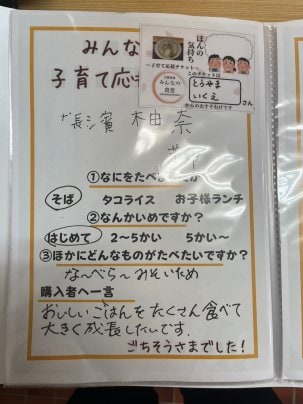 みんな
子育て応
ほんの
気持ち
～子育て応援チケット～
みんなの
食堂
このチケットは
とうやま
いくえ
さん
からのおすそわけです
長濱 柚奈
①なにをたべ
そば タコライス お子様ランチ
②なんかいめですか？
はじめて 2～5かい 5かい～
③ほかにどんなものがたべたいですか？
な～べら～みそいため
購入者へ一言
おいしいごはんをたくさん食べて
大きく成長したいです.
ごちそうさまでした！